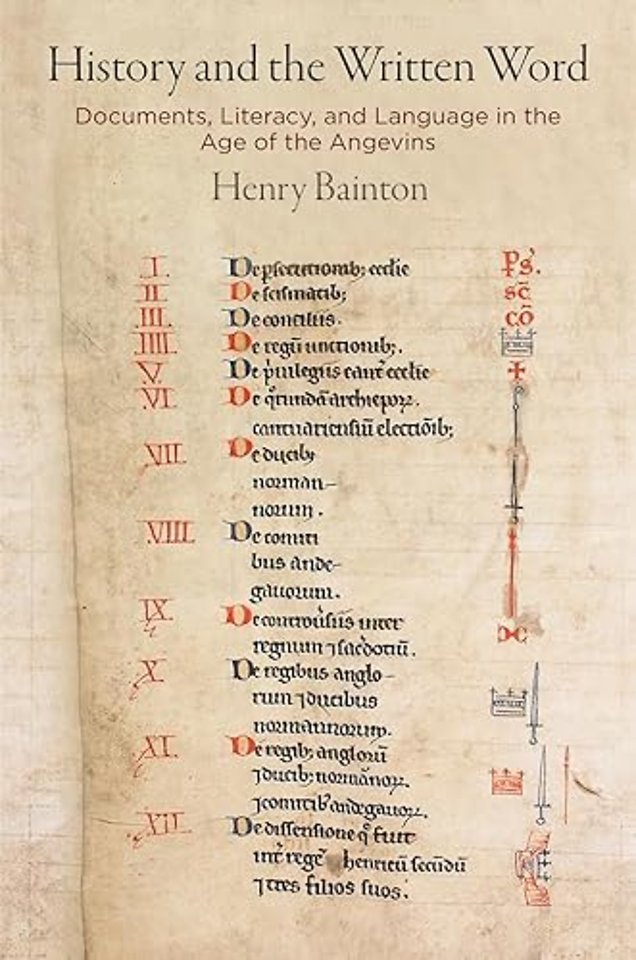 History and the Written Word
Documents, Literacy, and Language in the
Age of the Angevins
Henry Bainton
I. De ꝑsecutionib; eccƚie Ps'.
II De scismatib; sc̄
III. De conciliis. cō
IIII. De regū unctionib;.
V. De p'uilegiis canť eccƚie +
VI. De q̊rundā archiepoꝝ.
cantuariensiū electiōib;
VII. De ducib;
norman-
norum.
VIII. De comiti
bus ande-
gauorum.
IX. De controūsiis inter
regnum ⁊ sac̾dotiū.
X. De regibus anglo-
rum ⁊ ducibus
normannorum.
XI. De regib; anglorū
⁊ ducib; normānoꝝ.
⁊ comitib' andegauoꝝ.
XII. De dissensione q̊ fuit
int̾ regē henricū secūdū
⁊ tres filios suos.